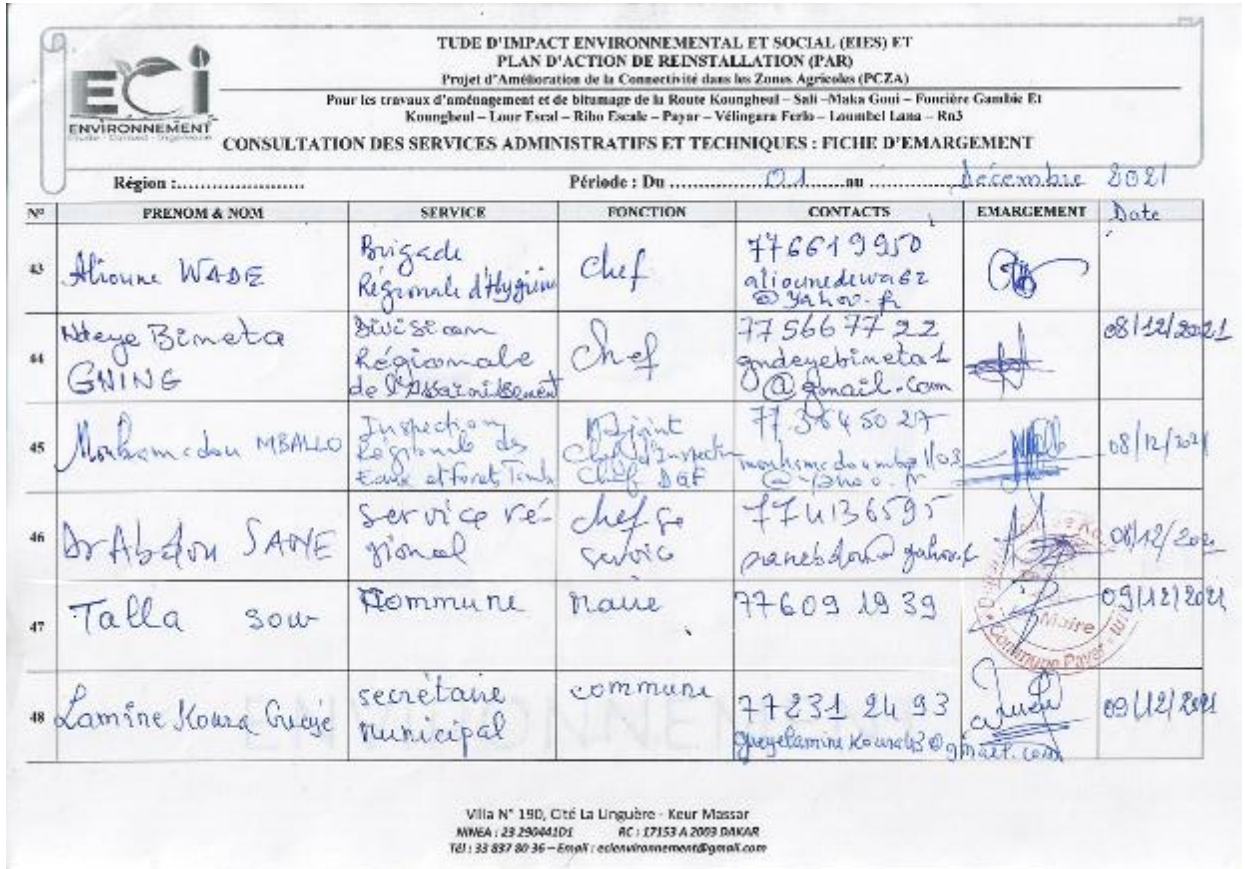 ECI
ENVIRONNEMENT
Etude - Conseil - Ingénierie
TUDE D'IMPACT ENVIRONNEMENTAL ET SOCIAL (EIES) ET
PLAN D'ACTION DE REINSTALLATION (PAR)
Projet d'Amélioration de la Connectivité dans les Zones Agricoles (PCZA)
Pour les travaux d'aménagement et de bitumage de la Route Koungheul – Sali –Maka Goui – Foncière Gambie Et
Koungheul – Lour Escal – Ribo Escale – Payar – Vélingara Ferlo – Loumbel Lana – Rn3
CONSULTATION DES SERVICES ADMINISTRATIFS ET TECHNIQUES : FICHE D'EMARGEMENT
Région :...................... Période : Du ..............01......au .............. Décembre 2021
N° PRENOM & NOM SERVICE FONCTION CONTACTS EMARGEMENT Date
43 Alioune WADE Brigade Régionale d'Hygiène chef 776619950 aliounedewa62 @yahoo.fr
44 Ndeye Bineta GNING Division Régionale de l'Assainissement Chef 77 566 77 22 gndeyebineta1 @gmail.com 08/12/2021
45 MBALLO Inspection Régionale des Eaux et Forets Adjoint Chef d'Inspection Chef DGF 08/12/2021
46 Dr Abdou SANE service régional chef service 774136595 08/12/202
47 Talla sow Commune maire 77609 19 39 Maire Commune Payar 09/12/2021
48 Lamine Koura Gueye secrétaire municipal commune 77231 24 93 gueyelaminekoura43@gmail.com 09/12/2021
ENVIRONNEMENT
Villa N° 190, Cité La Linguère - Keur Massar
NINEA : 23 290441D1 RC : 17153 A 2003 DAKAR
Tél : 33 837 80 36 – Email : ecienvironnement@gmail.com